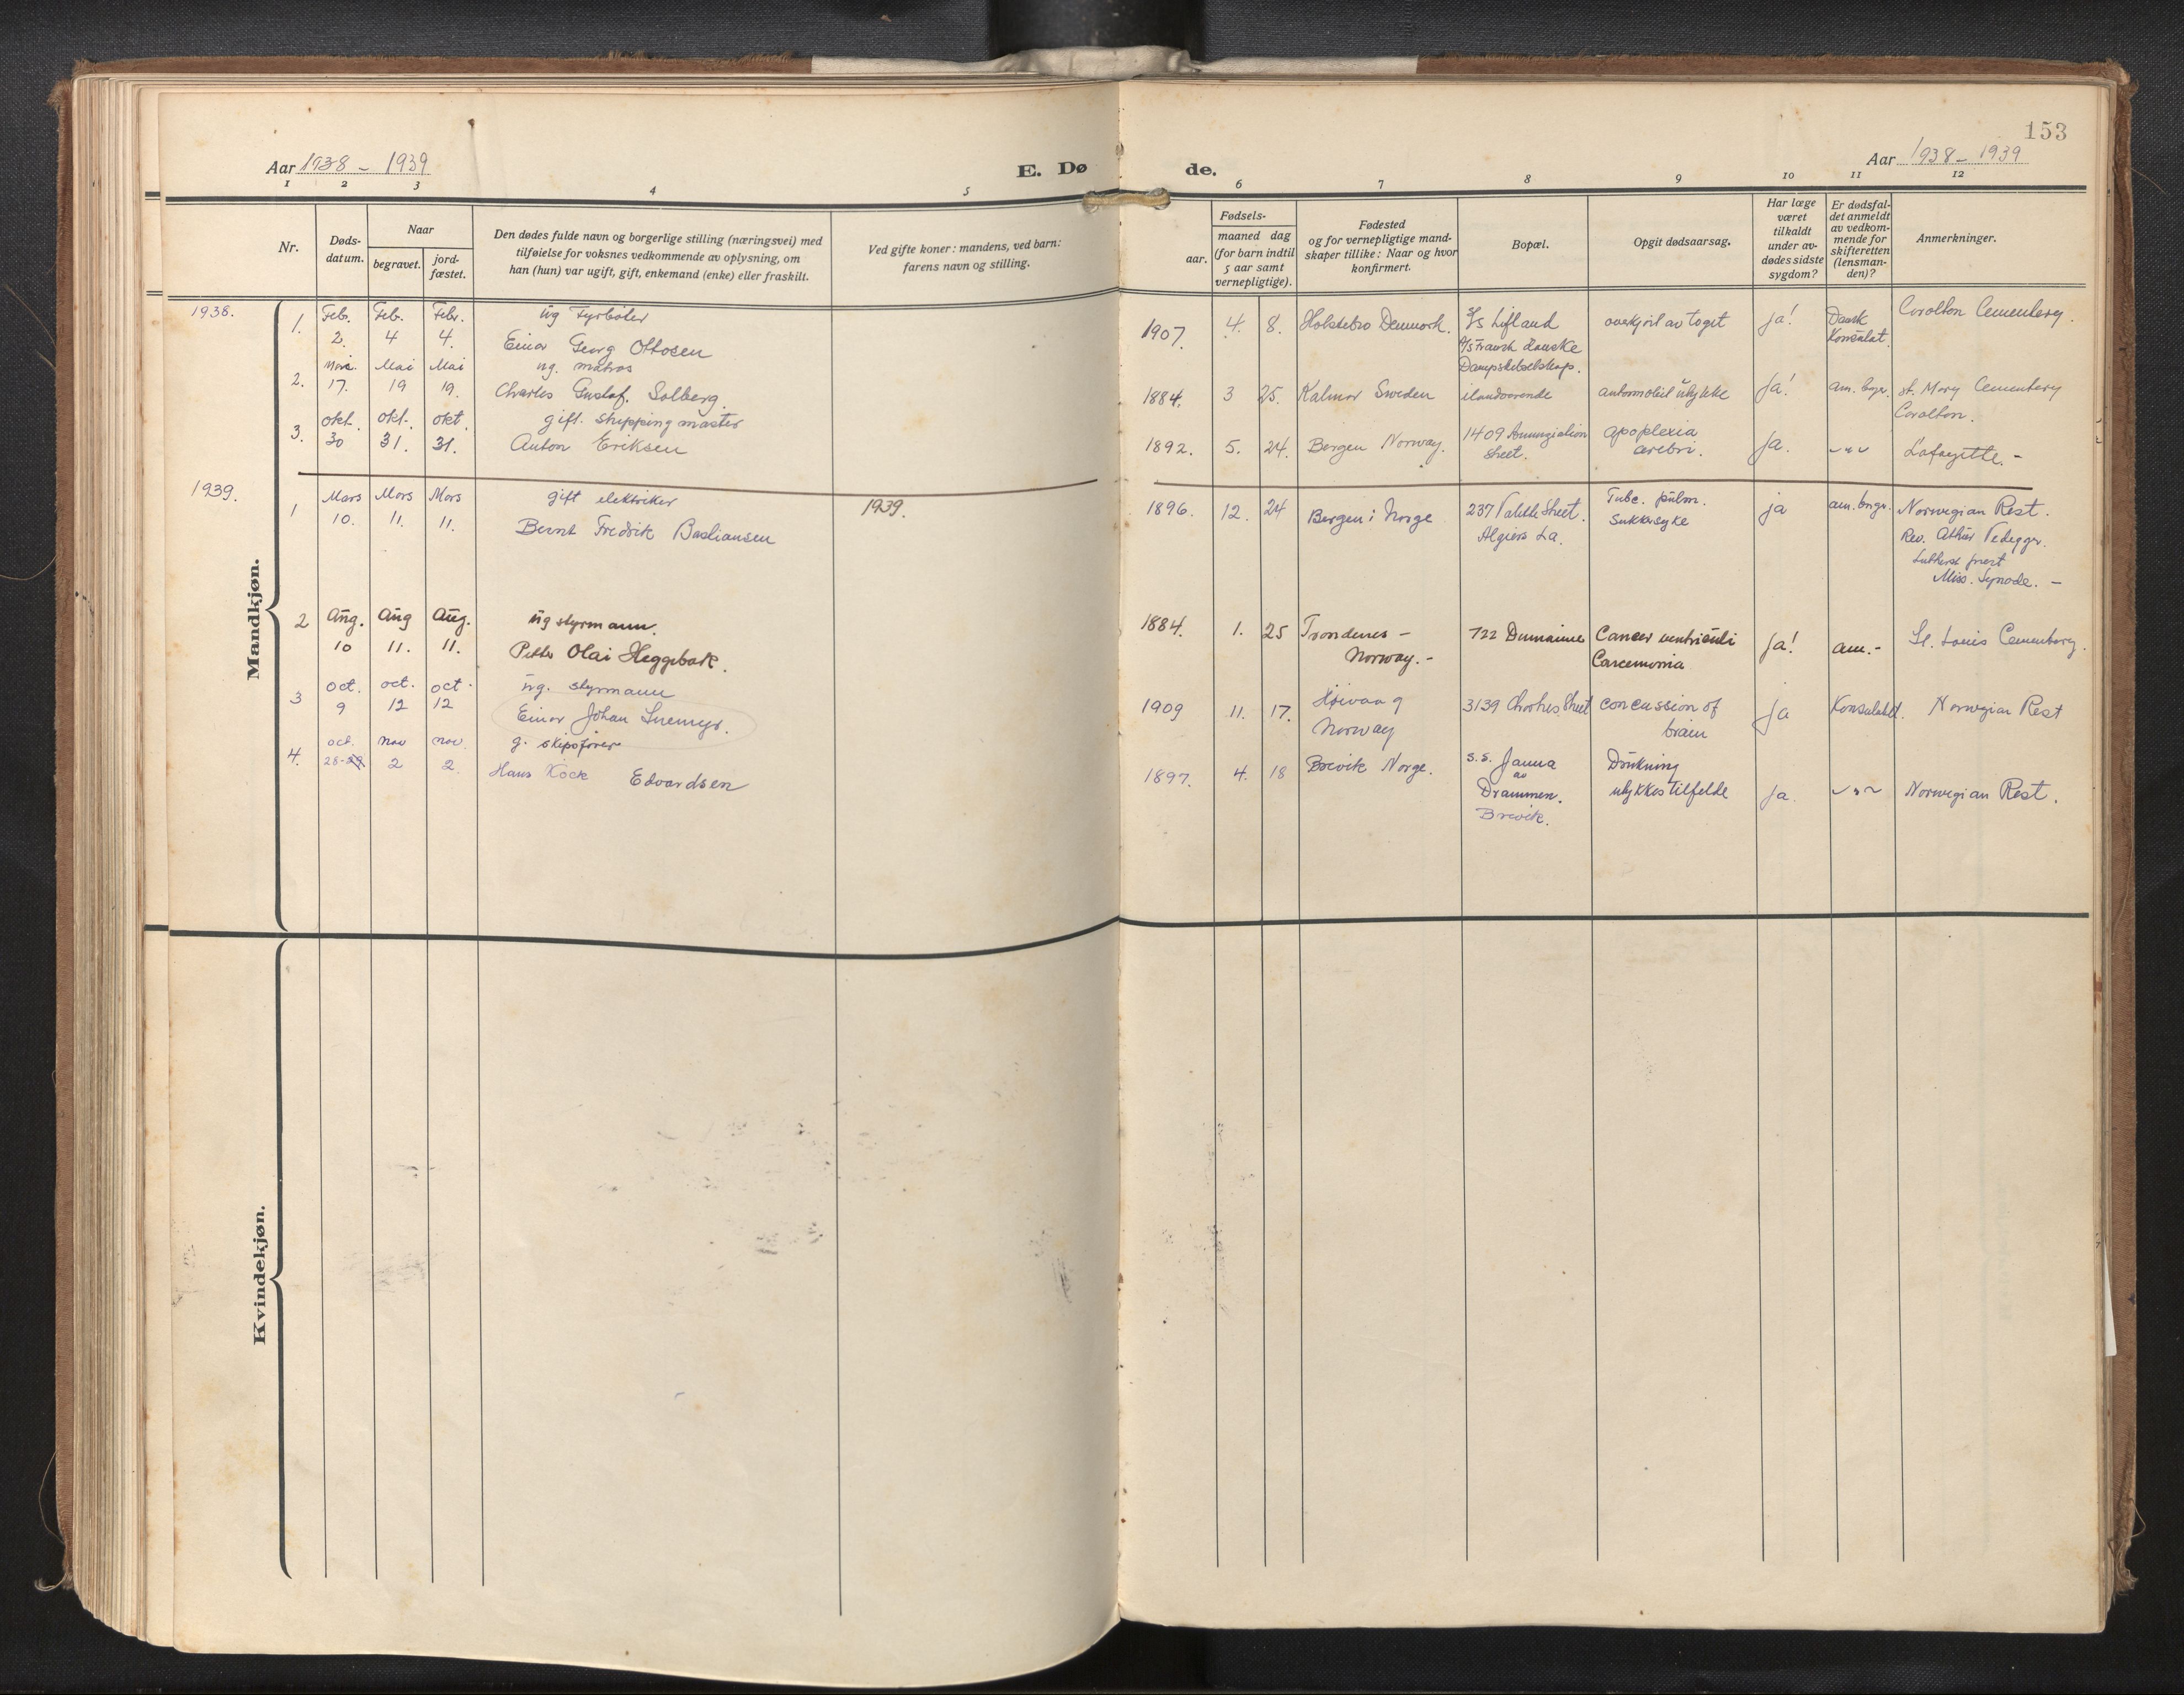 153
Aar 1938 - 1939
E. Dø
de.
Aar 1938 - 1939
1 2 3 4 5 6 7 8 9 10 11 12
Nr.
Døds-
datum.
Naar
begravet.
jord-
fæstet.
Den dødes fulde navn og borgerlige stilling (næringsvei) med
tilføielse for voksnes vedkommende av oplysning, om
han (hun) var ugift, gift, enkemand (enke) eller fraskilt.
Ved gifte koner: mandens, ved barn:
farens navn og stilling.
Fødsels-
aar.
maaned dag
(for barn indtil
5 aar samt
vernepligtige).
Fødested
og for vernepligtige mand-
skaper tillike: Naar og hvor
konfirmert.
Bopæl.
Opgit dødsaarsag.
Har læge
været
tilkaldt
under av-
dødes sidste
sygdom?
Er dødsfal-
det anmeldt
av vedkom-
mende for
skifteretten
(lensman-
den)?
Anmerkninger.
Mandkjøn.
1938.
1.
Feb. Feb. Febr.
2. 4 4.
ug Fyrbøter
Einar Georg Ottosen
1907. 4. 8.
Holstebro Denmark.
S/S Lifland
A/S Fransk Danske
Dampskibselskap.
overkjørt av toget
ja!
Dansk
Konsulat.
Corolton Cementery.
2.
Mai Mai Mai
17. 19 19.
ug. matros
Charles Gustaf. Solberg.
1884. 3 25.
Kalmar Sweden
ilandværende
automobil ulykke
Ja!
am. begr.
st. Mary Cementery
Corolton.
3.
okt. okt. okt.
30 31. 31.
gift. shippingmaster
Anton Eriksen
1892. 5. 24.
Bergen Norway.
1409 Annunziation
Street.
apoplexia
cerebri.
Ja.
-"-
Lafayette. -
1939.
1
Mars Mars Mars
10. 11. 11.
gift elektriker
Bernt Fredrik Bastiansen
1939.
1896. 12. 24
Bergen i Norge
237 Street.
Algiers La.
Tubc. pulm.
Sukkersyke
ja
am. begr.
Norwegian Rest.
Rev. Athur
Luthersk prest
Miss. Synode. -
2
Aug. Aug Aug.
10 11. 11.
ug styrmann.
Petter Olai Heggebak.
1884. 1. 25
Trondenes -
Norway. -
722 Dumaine
Cancer ventriculi
Carcemonia
Ja!
am. -
St. Louis Cementary.
3
oct. oct. oct.
9 12 12
ug. styrmann
Einar Johan Snemyr.
1909 11. 17.
Høivaag
Norway
3139 Street
concussion of
brain
Ja
Konsulatet.
Norwegian Rest
4.
oct. nov nov.
28-29 2 2.
g. skipsfører
Hans Kock Edvardsen
1897. 4. 18
Brevik Norge.
s.s. Janna
av
Drammen.
Brevik.
Drukning
ulykkestilfelde
Ja.
-"-
Norwegian Rest.
Kvindekjøn.